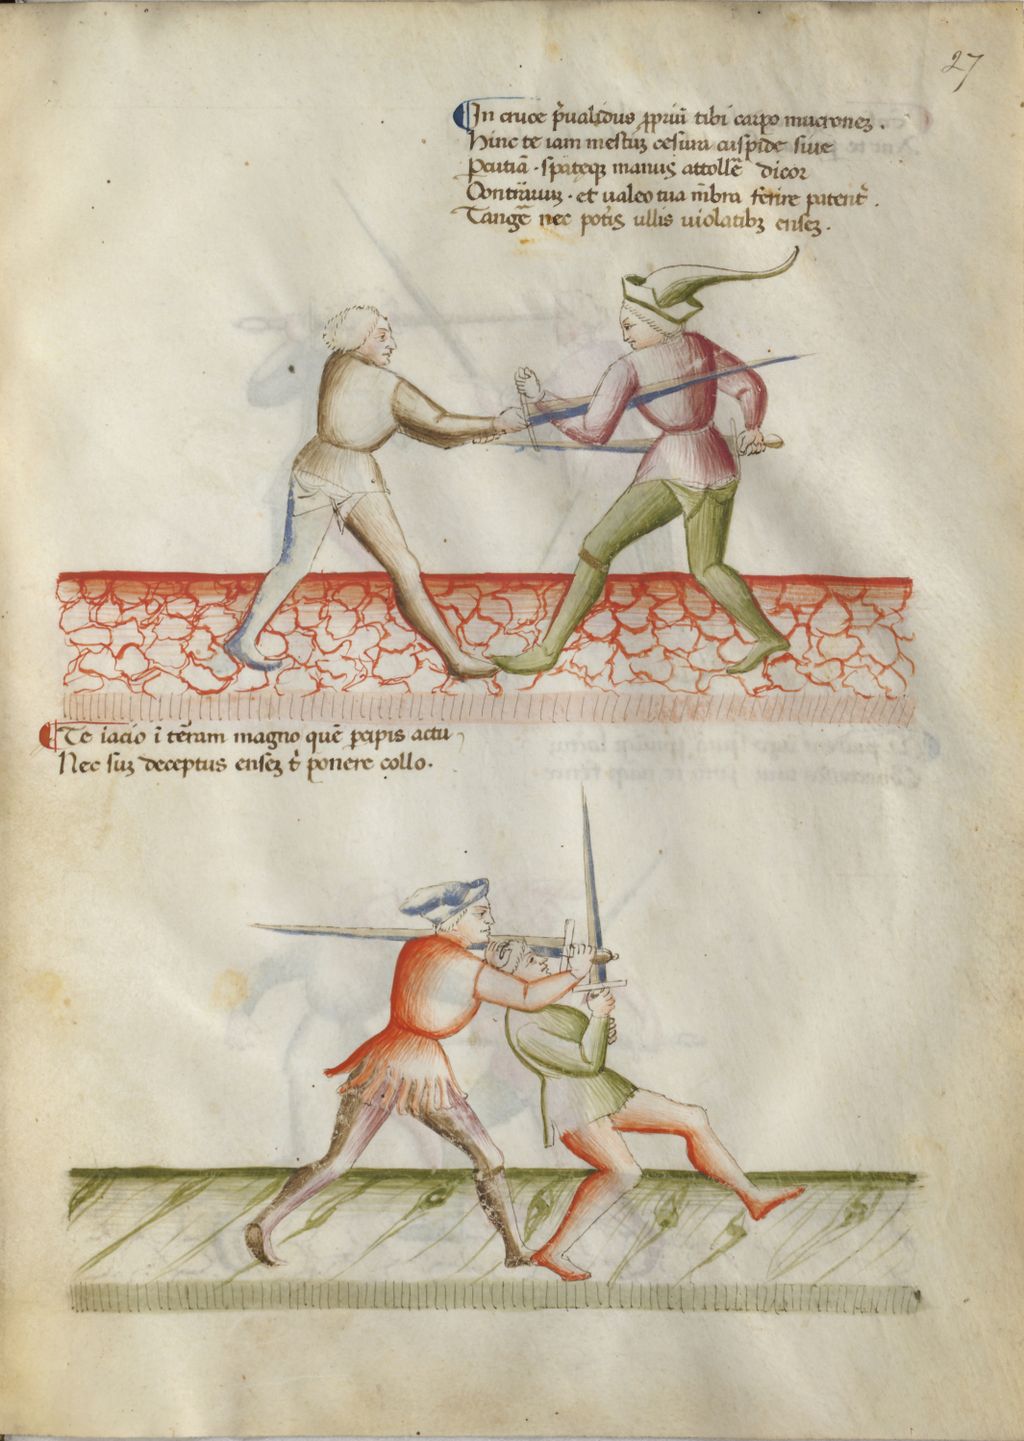 27
In cruce p̄ualidus ꝓpriū tibi carpo mucroneꝫ .
Hinc te iam mestuꝫ cesura cuspide siue
Pcutiā . spateqꝫ manuſ attollē dicor
Contrāriuꝫ . et ualeo tua mēbra ferire patent̄ .
Tangē nec potiſ ullis uiolatibꝫ enseꝫ .
Te iacio ī tērram magno quē ꝑcipis actu ,
Nec suꝫ deceptus enseꝫ t̄ ponere collo .